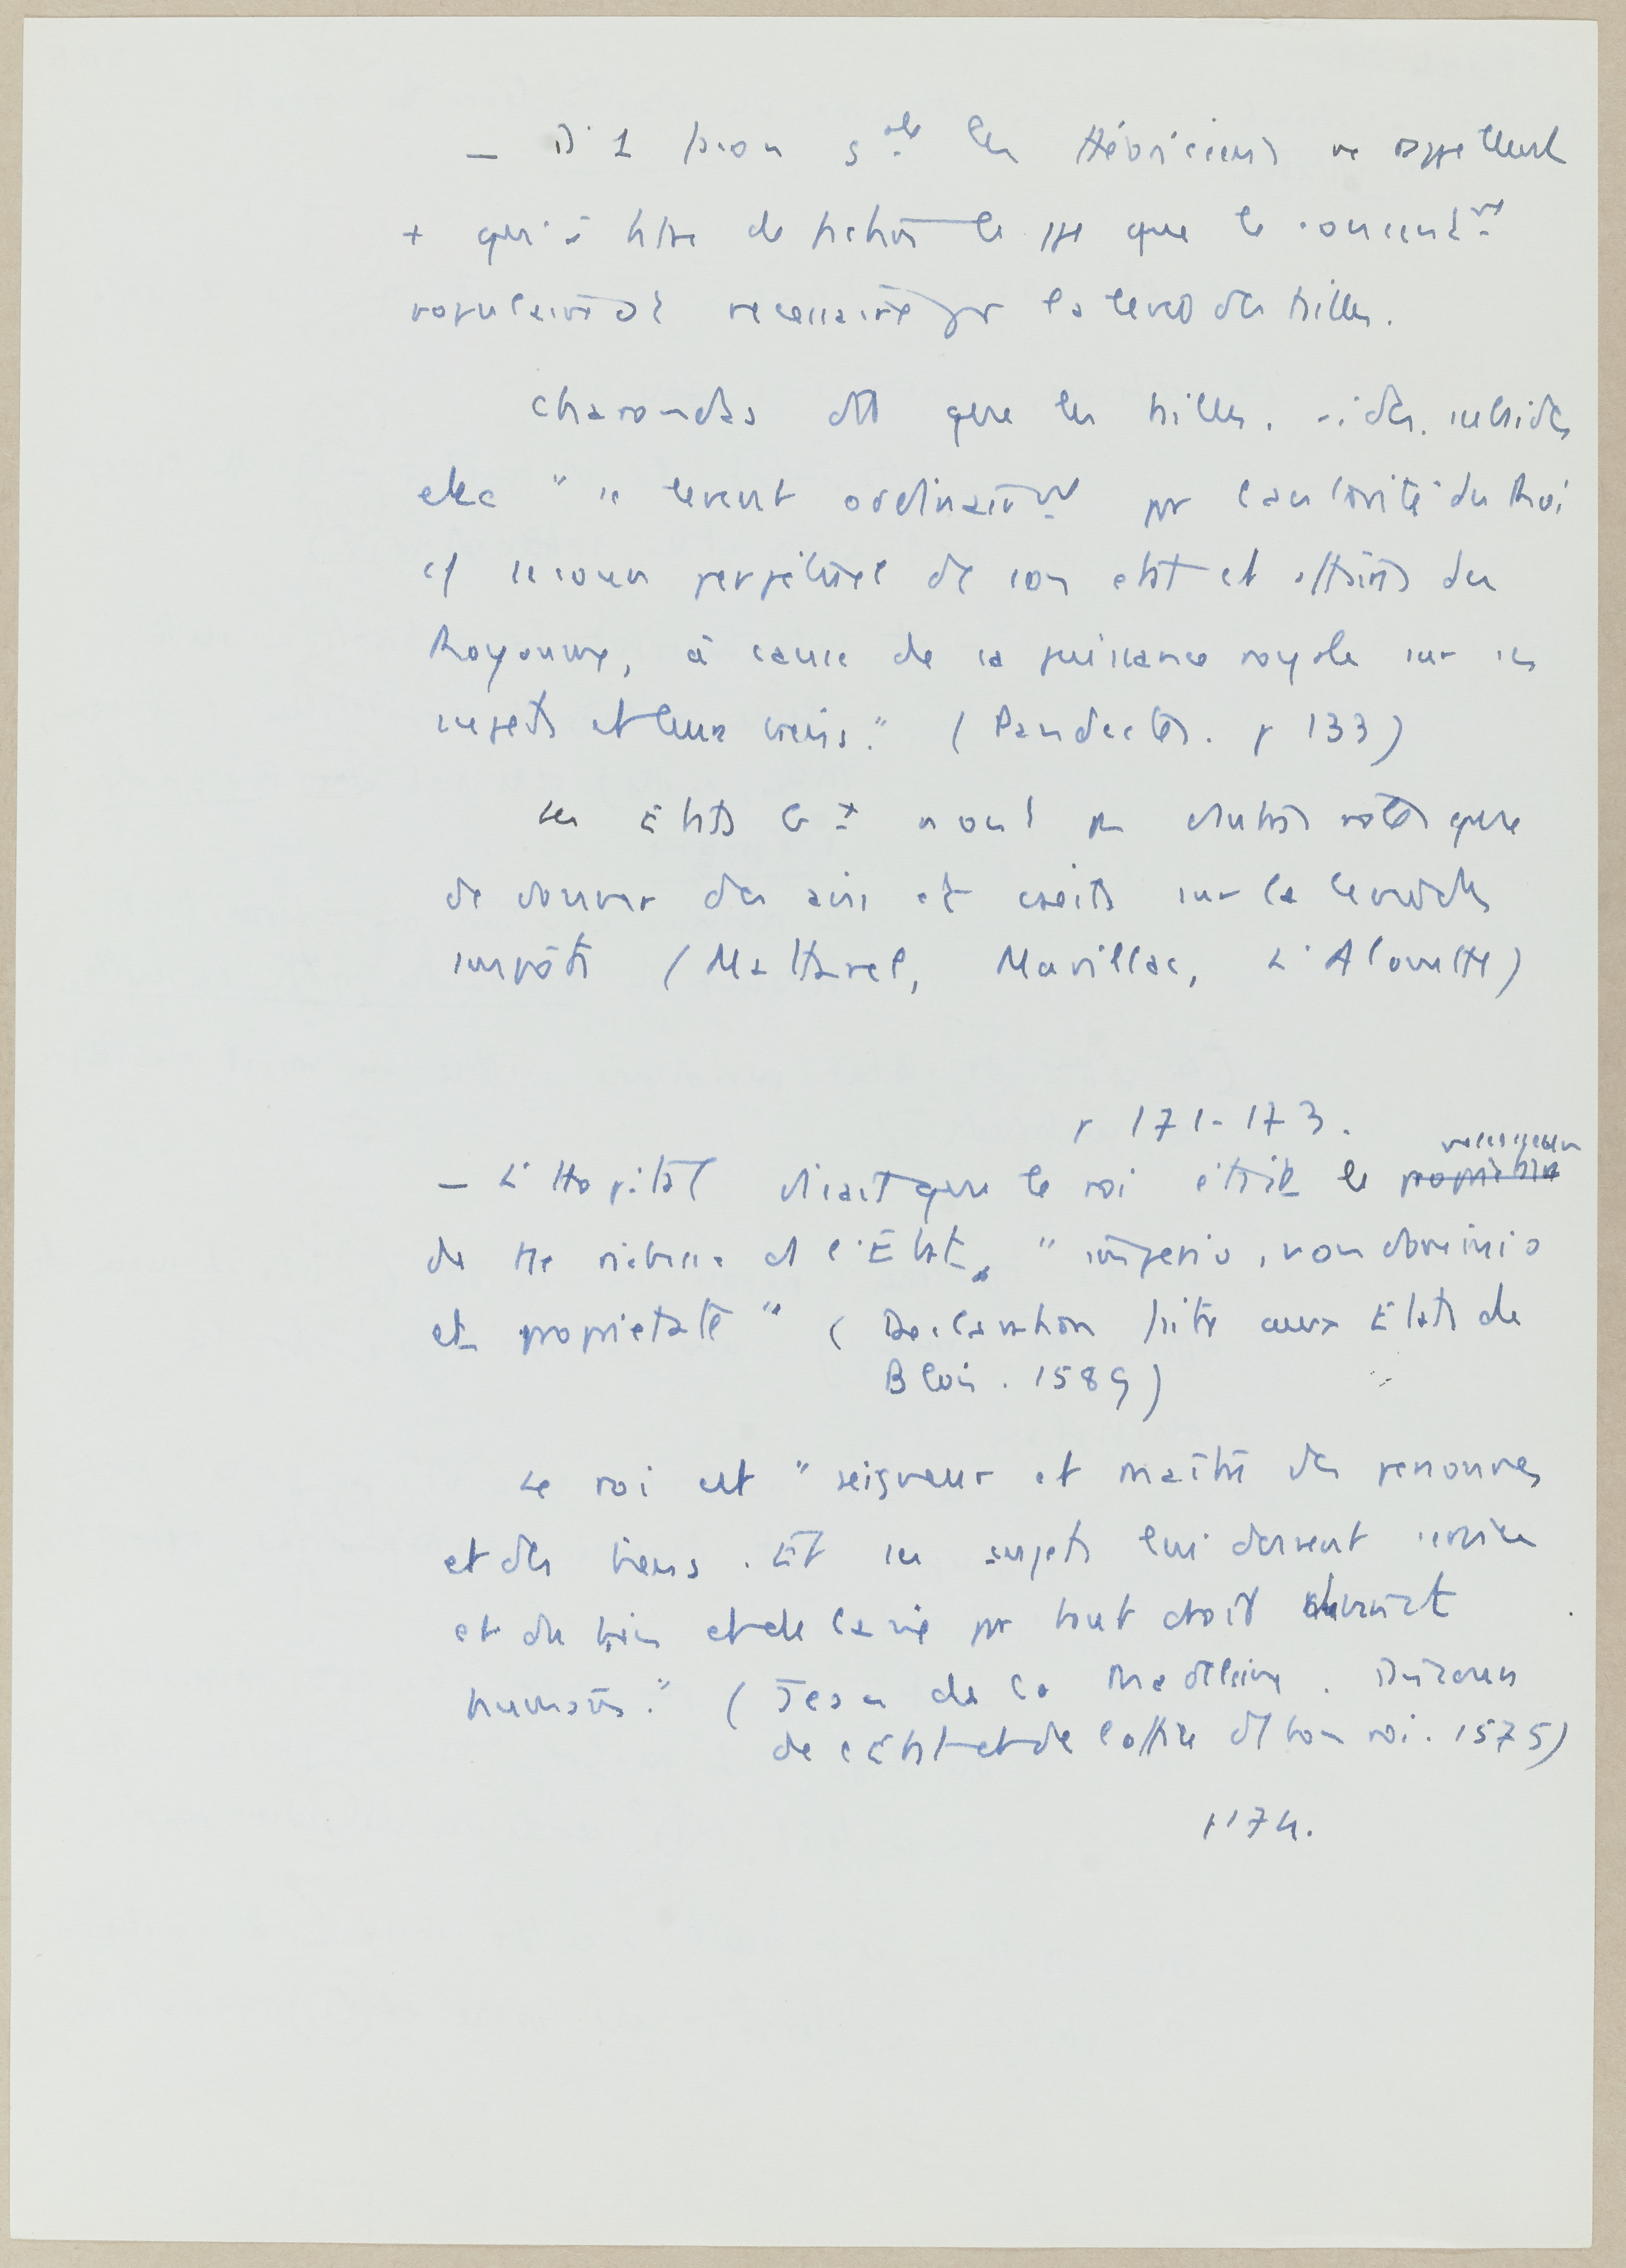 — D'1 façon gale les théoriciens ne rappellent
+ qu'à titre de fiction le ppe que le consentt
populaire est nécessaire pr la levée des tailles.
Charondas dit que les tailles, aides, subsides
etc " se levent ordinairemt par l'autorité du Roi
secours perpétuel de son etat et affaires du
Royaume, à cause de sa puissance royale sur ses
sujets et leurs biens." (Pandectes. p 133)
Les Etats Gx n'ont pas d'autres rôles que
de donner des avis et conseils sur la levée des
impôts (Matharel, Marillac, L'Alouette)
p 171-173.
— L'Hopital disait que le roi était le propriétaire possesseur
de tte richesse de l'Etat, " imperio, non dominio
et proprietate " (Declaration faite aux Etats de
Blois. 1589)
Le roi est " seigneur et maître des personnes
et des biens. Et ses sujets lui doivent service
et du bien et de la vie par tout droit divin et
humain." (Jean de la Madeleine. Discours
de l'Etat et de l'office d'1 bon roi. 1575)
p 174.